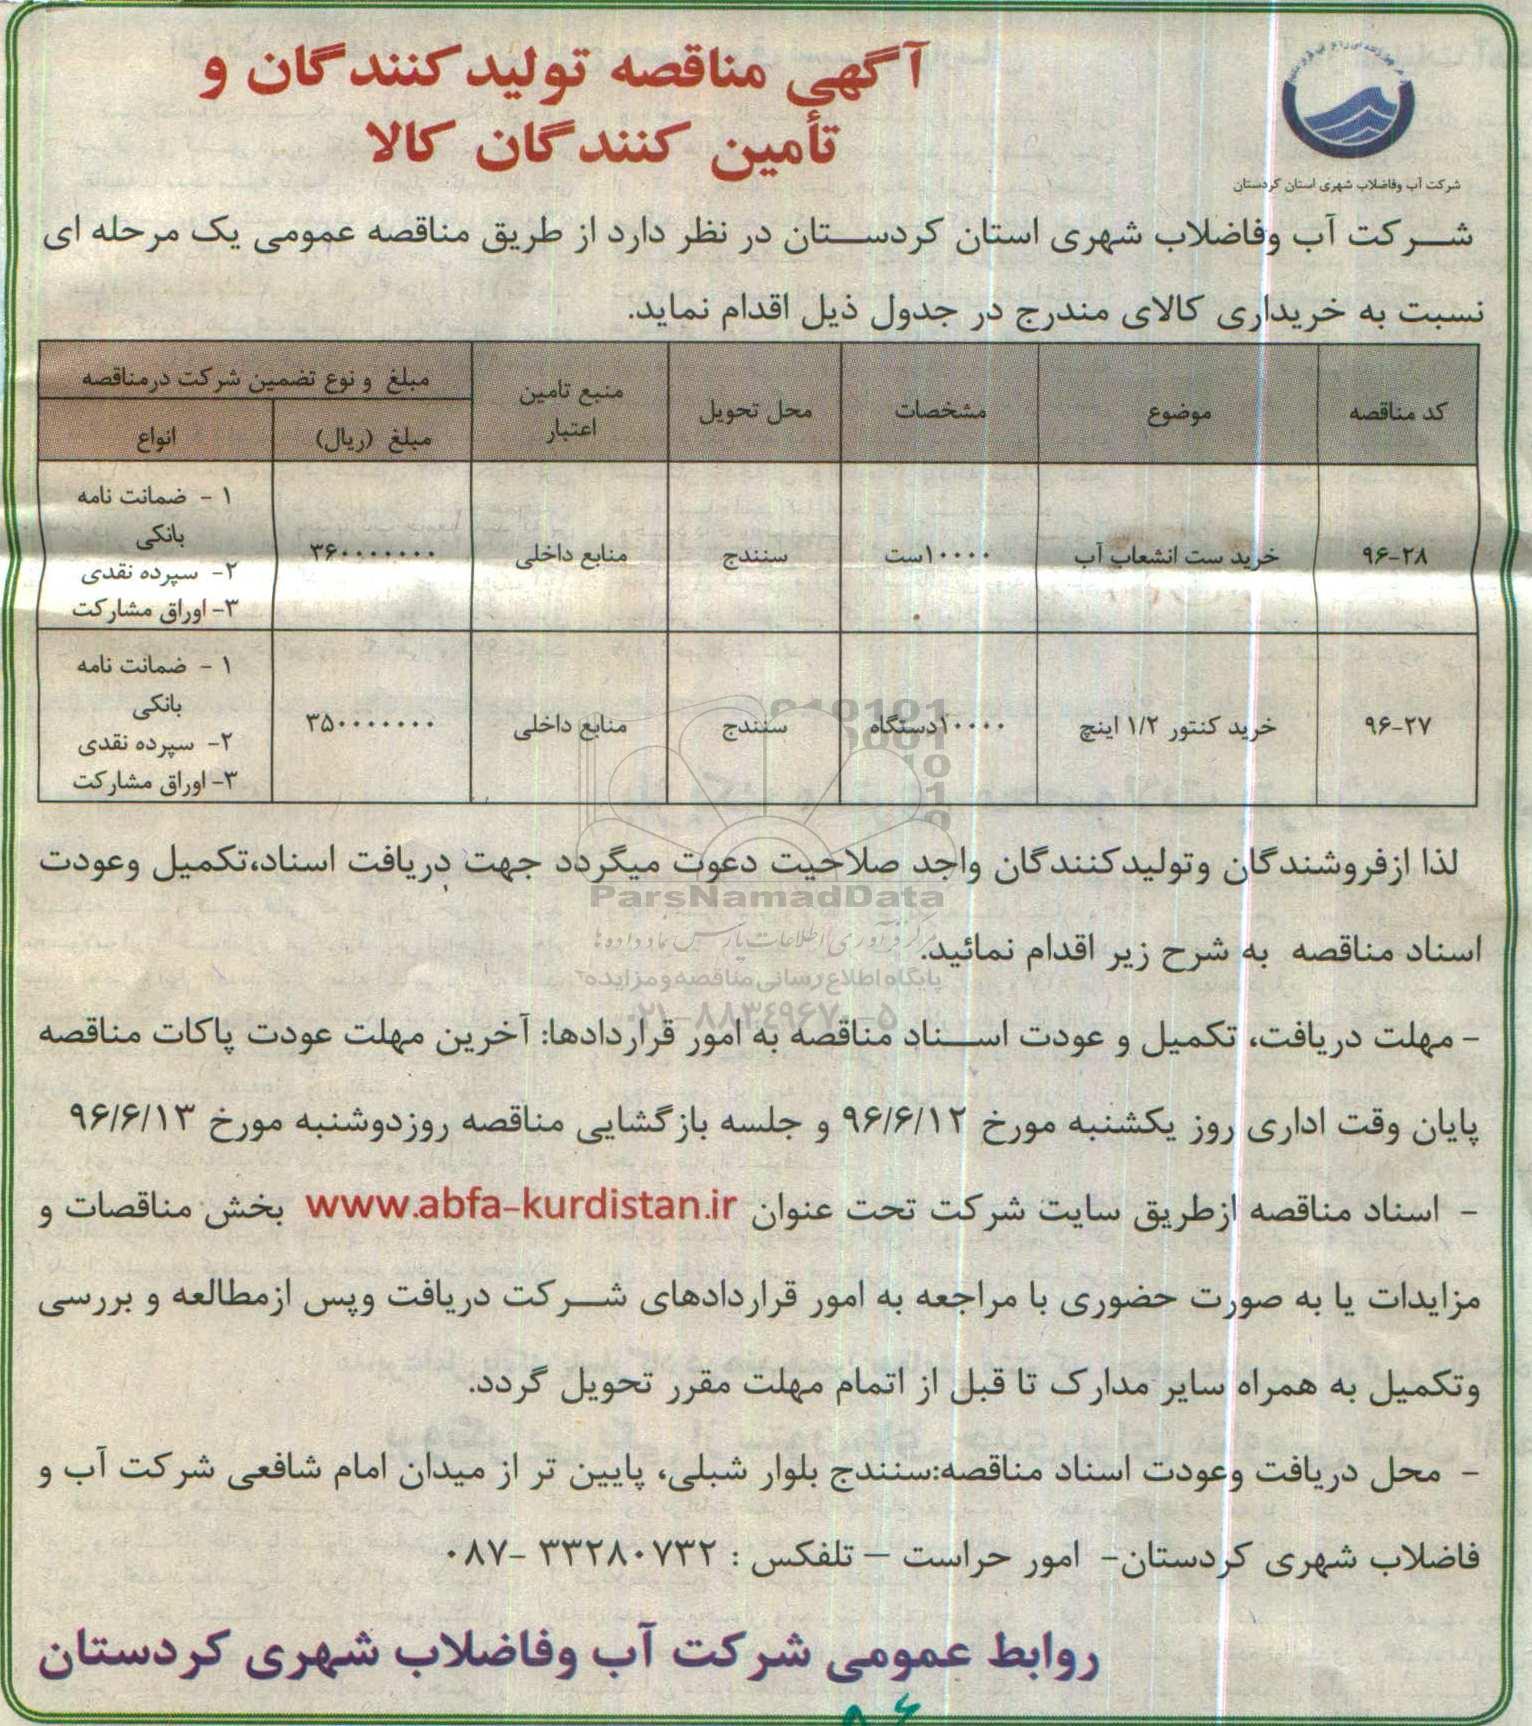 آگهی مناقصه تولیدکنندگان و
تأمین کنندگان کالا
شرکت آب وفاضلاب شهری استان کردستان
شرکت آب وفاضلاب شهری استان کردستان در نظر دارد از طریق مناقصه عمومی یک مرحله ای
نسبت به خریداری کالای مندرج در جدول ذیل اقدام نماید.
کد مناقصه | موضوع | مشخصات | محل تحویل | منبع تامین اعتبار | مبلغ و نوع تضمین شرکت درمناقصه
مبلغ (ریال) | انواع
۹۶-۲۸ | خرید ست انشعاب آب | ۱۰۰۰۰ست | سنندج | منابع داخلی | ۳۶۰۰۰۰۰۰۰۰ | ۱ - ضمانت نامه
بانکی
۲- سپرده نقدی
۳- اوراق مشارکت
۹۶-۲۷ | خرید کنتور ۱/۲ اینچ | ۱۰۰۰۰دستگاه | سنندج | منابع داخلی | ۳۵۰۰۰۰۰۰۰۰ | ۱ - ضمانت نامه
بانکی
۲- سپرده نقدی
۳- اوراق مشارکت
لذا ازفروشندگان وتولیدکنندگان واجد صلاحیت دعوت میگردد جهت دریافت اسناد،تکمیل وعودت
ParsNamadData
مرکز فرآوری اطلاعات پارس نماد داده ها
اسناد مناقصه به شرح زیر اقدام نمائید.
پایگاه اطلاع رسانی مناقصه و مزایده
۰۲۱-۸۸۳۴۹۶۷۰-۵
- مهلت دریافت، تکمیل و عودت اسناد مناقصه به امور قراردادها: آخرین مهلت عودت پاکات مناقصه
پایان وقت اداری روز یکشنبه مورخ ۹۶/۶/۱۲ و جلسه بازگشایی مناقصه روزدوشنبه مورخ ۹۶/۶/۱۳
- اسناد مناقصه ازطریق سایت شرکت تحت عنوان www.abfa-kurdistan.ir بخش مناقصات و
مزایدات یا به صورت حضوری با مراجعه به امور قراردادهای شرکت دریافت وپس ازمطالعه و بررسی
وتکمیل به همراه سایر مدارک تا قبل از اتمام مهلت مقرر تحویل گردد.
- محل دریافت وعودت اسناد مناقصه:سنندج بلوار شبلی، پایین تر از میدان امام شافعی شرکت آب و
فاضلاب شهری کردستان- امور حراست – تلفکس : ۳۳۲۸۰۷۳۲ -۰۸۷
روابط عمومی شرکت آب وفاضلاب شهری کردستان